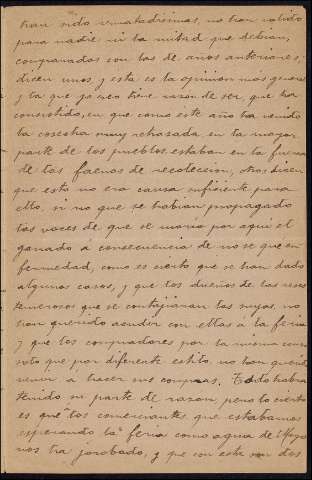 han sido rematadísimas, no han valido
para nadie ni la mitad que debían,
comparadas con las de años anteriores;
dicen unos, y esta es la opinion mas general
y la que yo veo tiene razon de ser, que ha
consistido, en que como este año ha venido
la cosecha muy rechasada, en la mayor
parte de los pueblos estaban en la fuerza
de las faenas de recoleccion, otros dicen
que esto no era causa suficiente para
ello, si no que se habian propagado
las voces de que se moria por aqui el
ganado á consecuencia de no se que en-
fermedad, como es cierto que se han dado
algunos casos, y que los dueños de las reses
temerosos que se contajiaran las suyas, no
han querido acudir con ellas á la feria
y que los compradores por la misma causa
solo que por diferente estilo, no han querido
venir a hacer sus compras. Todo habra
tenido su parte de razon, pero lo cierto
es que á los comerciantes que estabamos
esperando la feria como agua de Mayo
nos ha jorobado, y que con esta van dos